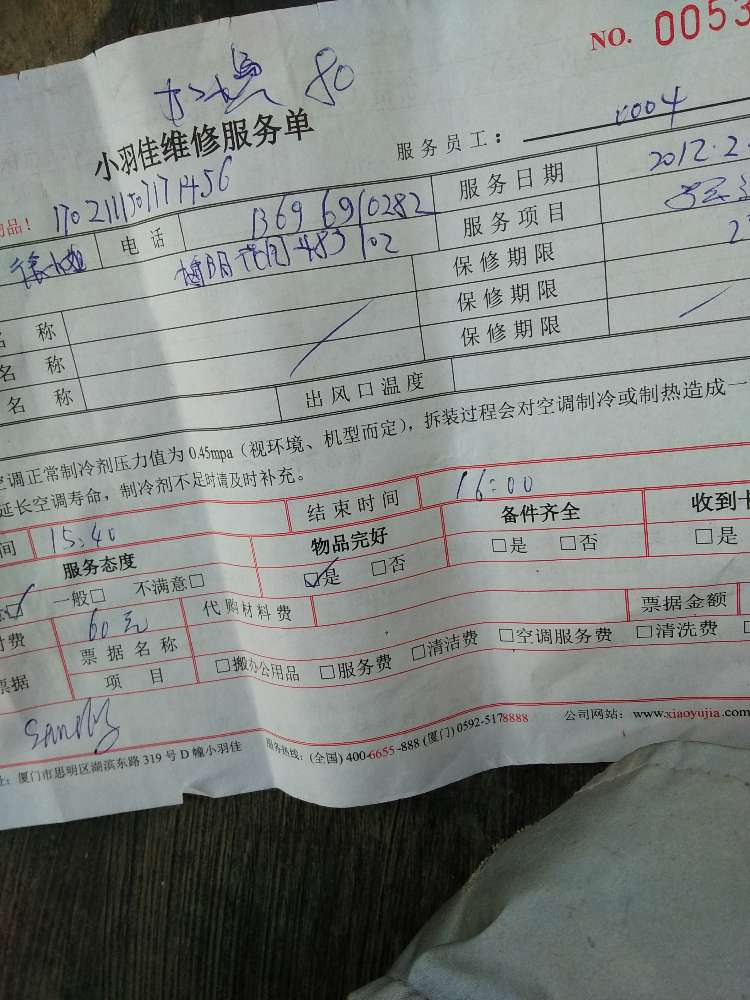 NO. 0053
80
小羽佳维修服务单
服务员工：
物品！ 1702111507171456
电话 13696910282 服务日期 2012.2.
483 102 服务项目
保修期限
名 称 保修期限
名 称 保修期限
名 称 出风口温度
空调正常制冷剂压力值为 0.45mpa（视环境、机型而定），拆装过程会对空调制冷或制热造成一
延长空调寿命，制冷剂不足时请及时补充。
间 15:40 结束时间 16:00
服务态度 物品完好 备件齐全 收到卡
一般□ 不满意□ ☑是 □否 □是 □否 □是
付费 60元 代购材料费 票据金额
票据 票据名称
项 目 □搬办公用品 □服务费 □清洁费 □空调服务费 □清洗费
址：厦门市思明区湖滨东路 319 号 D 幢小羽佳 服务热线：(全国) 400-6655-888 (厦门) 0592-5178888 公司网站：www.xiaoyujia.com